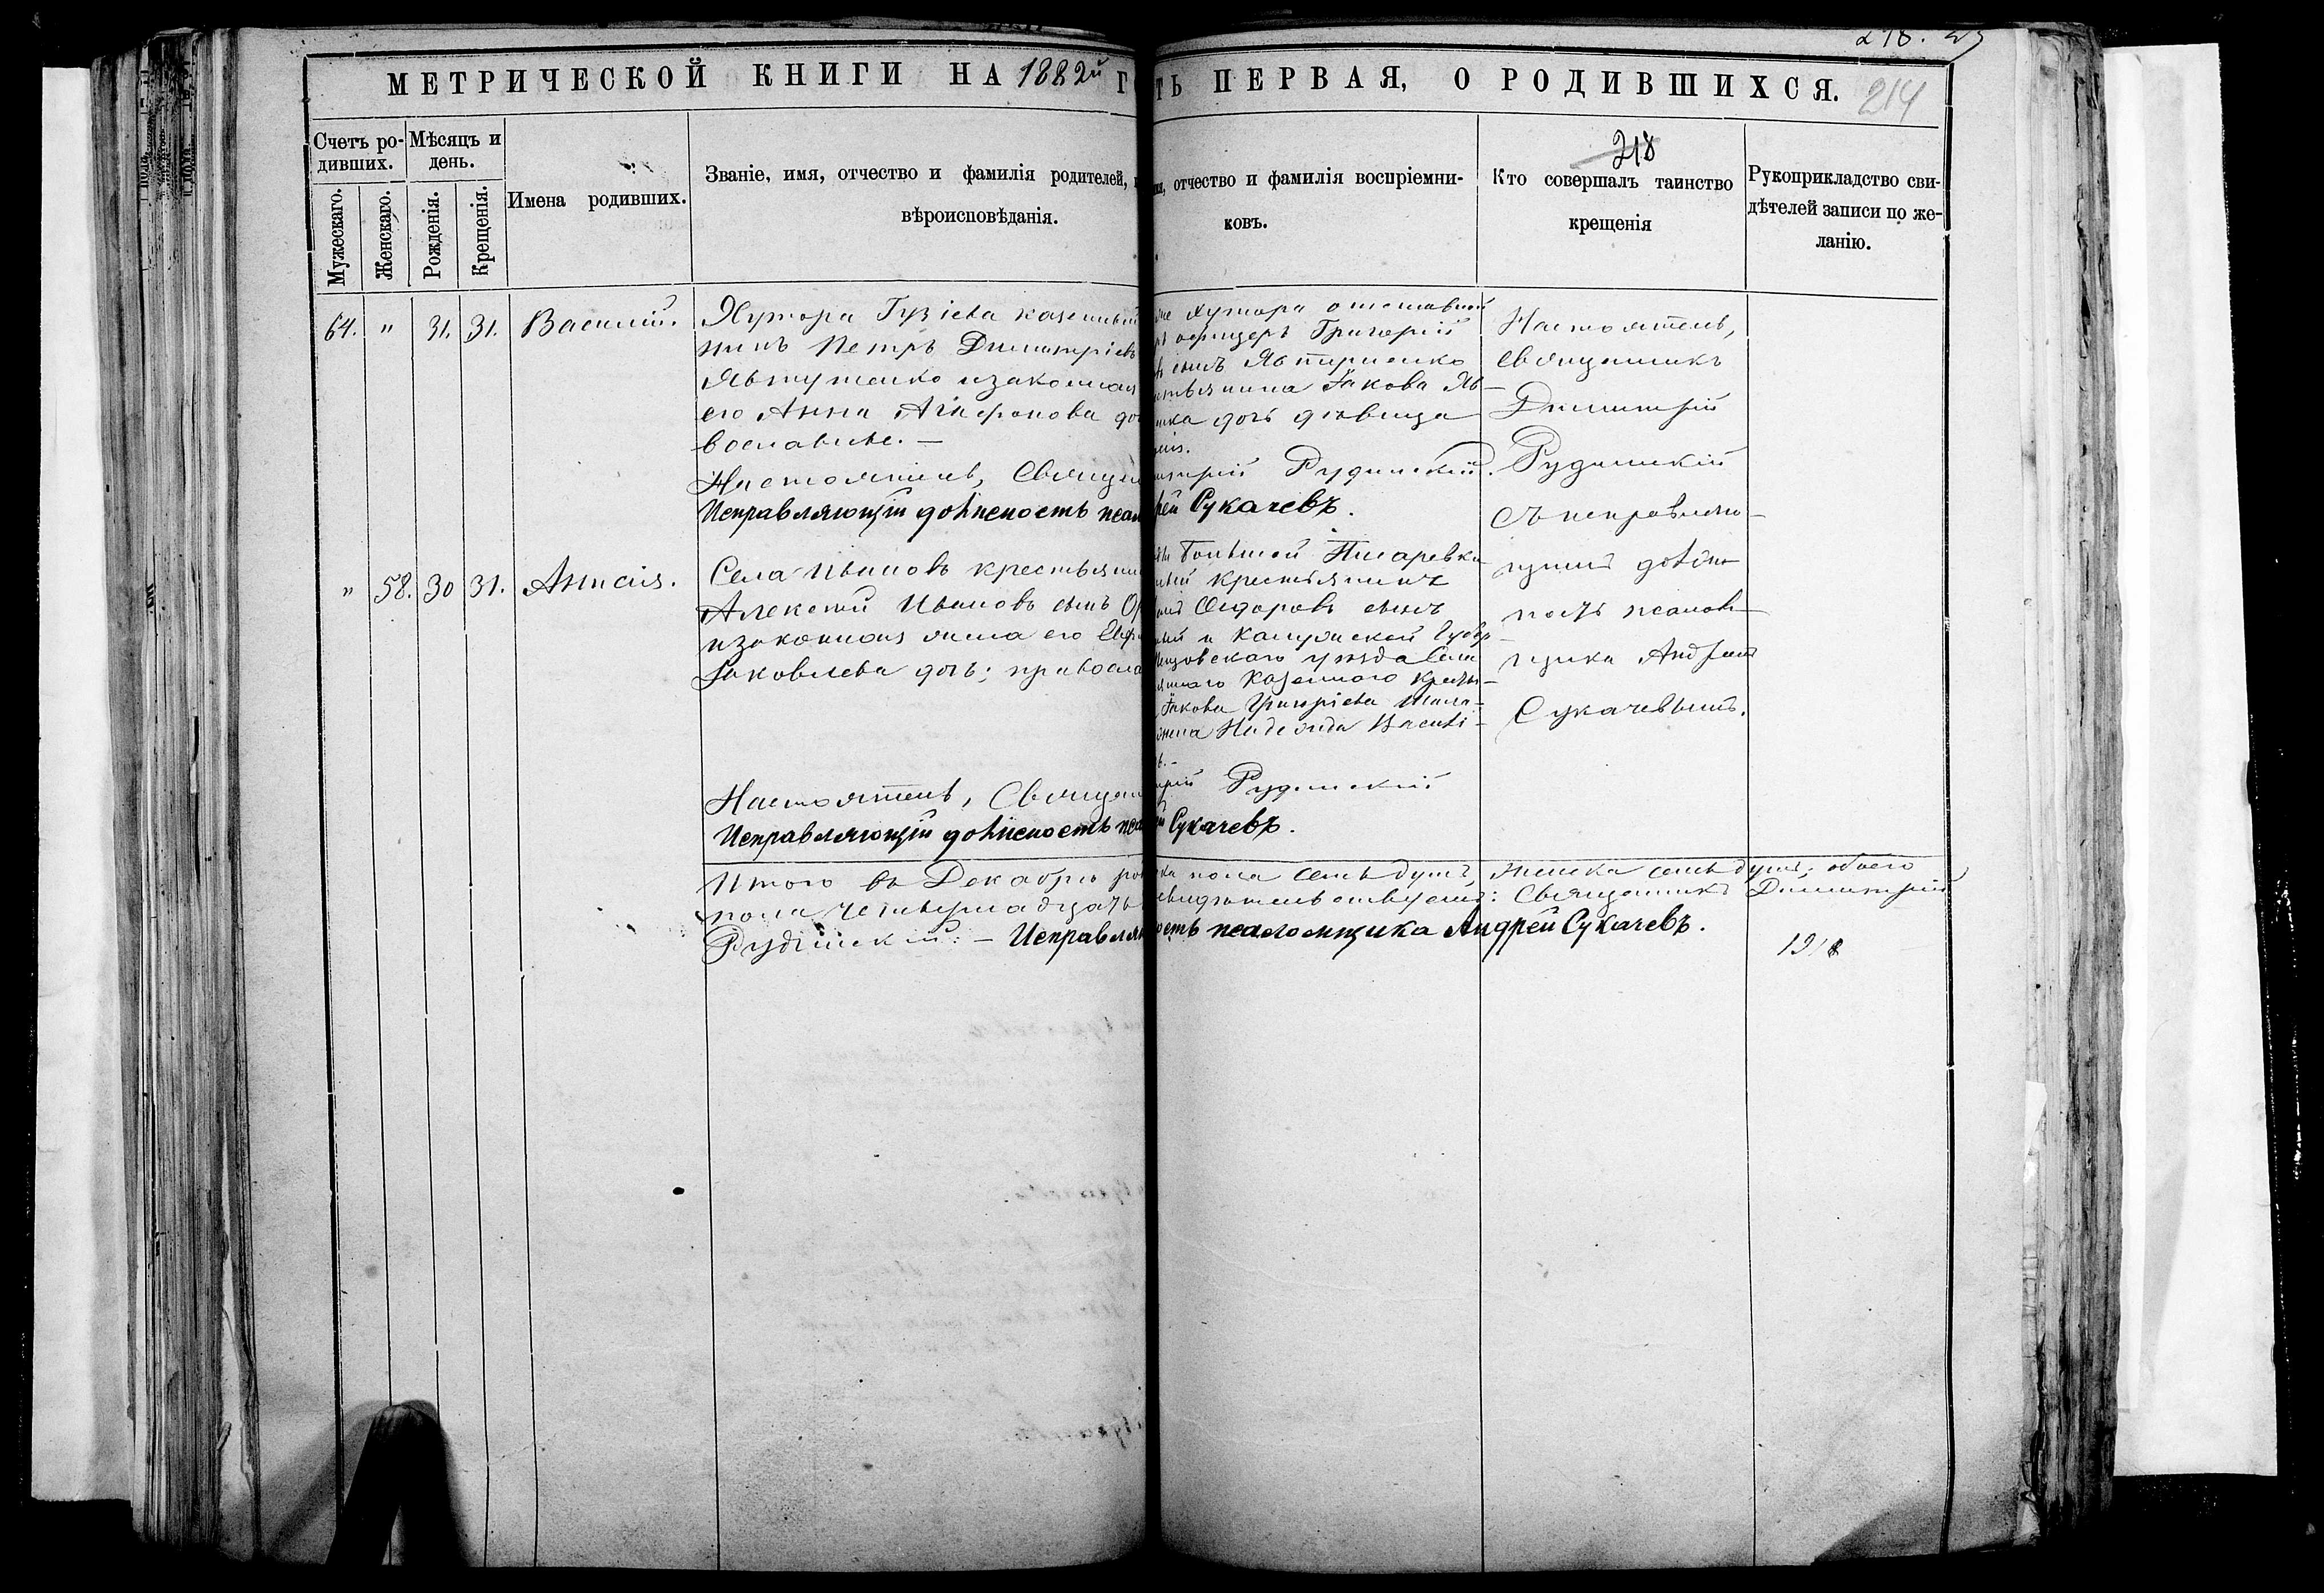 218. 25
МЕТРИЧЕСКОЙ КНИГИ НА 1882й Г
ТЬ ПЕРВАЯ, О РОДИВШИХСЯ. 214
Счетъ ро-
дившихъ.
Мѣсяцъ и
день.
Мужескаго.
Женскаго.
Рожденія.
Крещенія.
Имена родившихъ.
Званіе, имя, отчество и фамилія родителей,
вѣроисповѣданія.
отчество и фамилія воспріемни-
ковъ.
218
Кто совершалъ таинство
крещенія
Рукоприкладство сви-
дѣтелей записи по же-
ланію.
64. " 31. 31. Василій.
Хутора Гузіева казенный
нинъ Петръ Димитріевъ
Явтушенко и законная
его Анна Агафонова до
вославные. —
Настоятель, Священ
Исправляющій должность псал
хутора отставной
офицеръ Григорій
сынъ Явтушенко
Іакова Яв-
дочь дѣвица
Рудинскій.
рей Сукачевъ.
Настоятель,
священникъ
Димитрій
Рудинскій
съ исправляю-
щимъ долж-
ность псалом-
щика Андреемъ
Сукачевымъ.
" 58. 30 31. Анисія.
Села Ивановъ крестьянин
Алексѣй Ивановъ сынъ
и законная жена его
Іаковлева дочь; правосла
Большой Писаревки
крестьянинъ
Сидоровъ сынъ
и Калужской Губер-
уѣзда Села
казенного кресть-
Іакова Григоріева
жена Надежда Василі-
Настоятель, Священ
Исправляющій должность пса
Рудинскій
Сукачевъ.
Итого въ Декабрѣ ро
пола семь душъ, женска семь душъ; обоего
пола четырнадцать
свидѣтельствуемъ: Священникъ Димитрій
Рудинскій. — Исправля
ость псаломщика Андрей Сукачевъ.